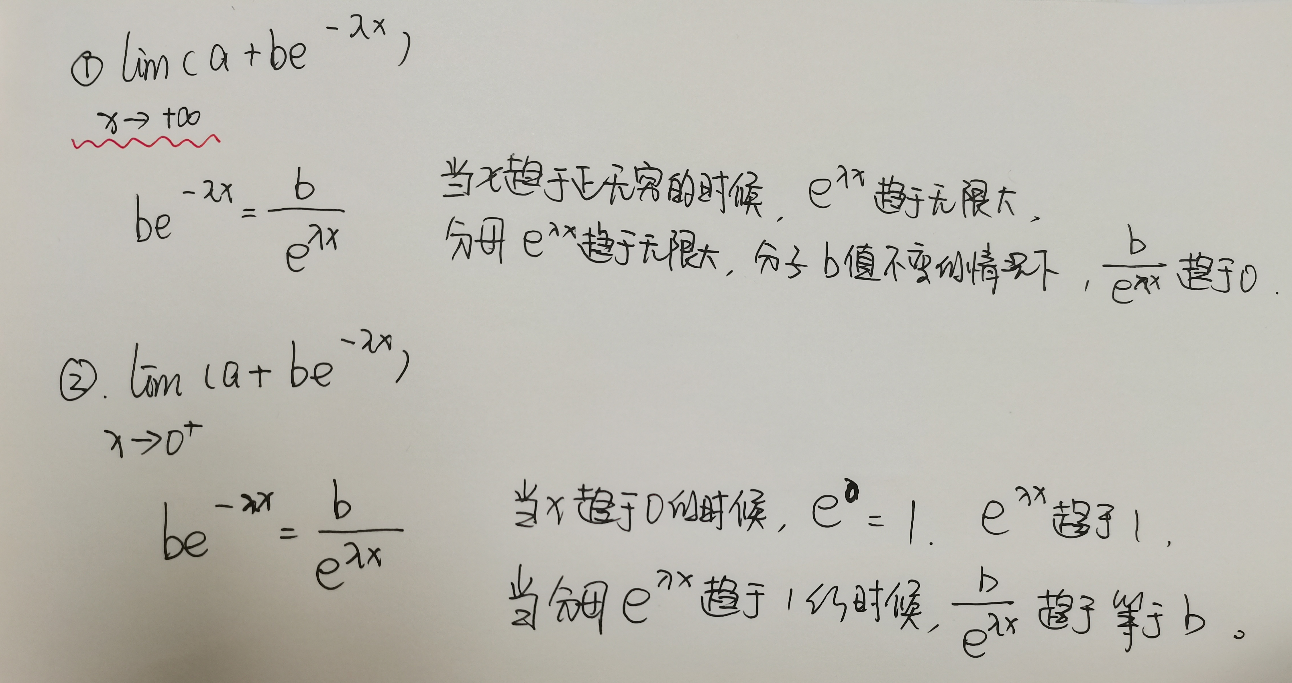 ① lim(a+be^{-λx})
x→+∞
be^{-λx} = b/e^{λx}
当x趋于正无穷的时候, e^{λx}趋于无限大,
分母e^{λx}趋于无限大, 分子b值不变的情况下, b/e^{λx} 趋于0.
②. lim(a+be^{-λx})
x→0⁺
be^{-λx} = b/e^{λx}
当x趋于0的时候, e⁰=1. e^{λx}趋于1,
当分母e^{λx}趋于1的时候, b/e^{λx} 趋于等于b。